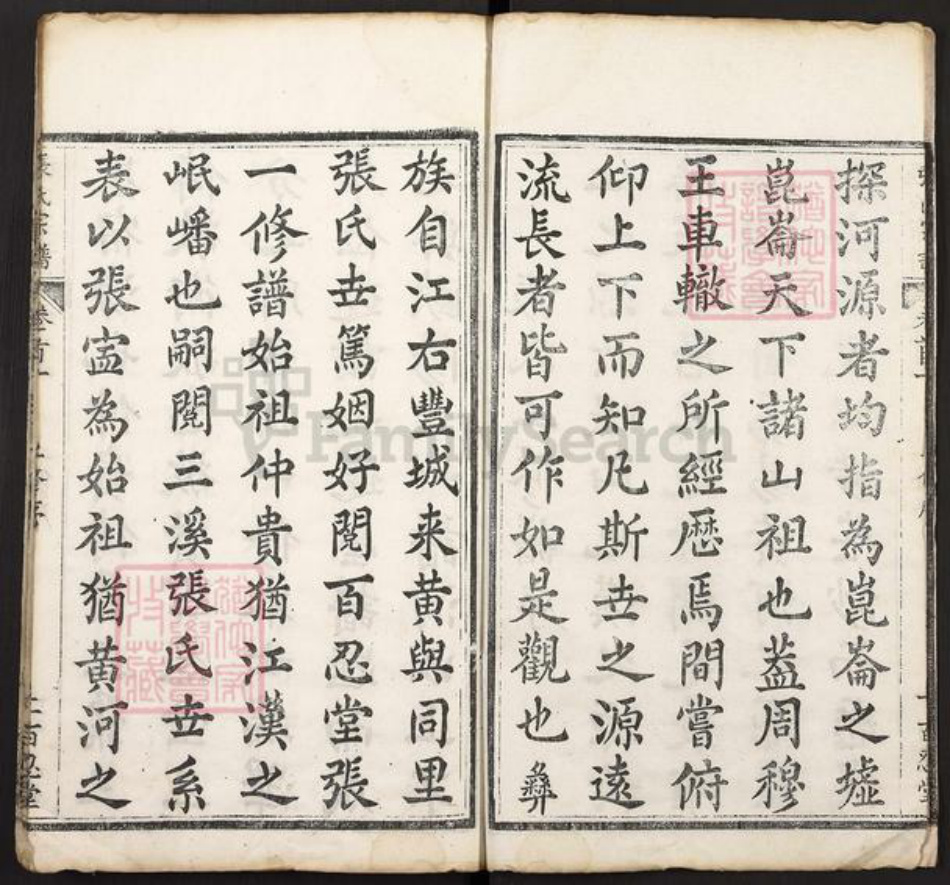 探河源者均指為崑崙之墟
崑崙天下諸山祖也葢周穆
王車轍之所經歷焉間嘗俯
仰上下而知凡斯世之源遠
流長者皆可作如是觀也彝
族自江右豐城来黄與同里
張氏世篤姻好閱百忍堂張
一修譜始祖仲貴猶江漢之
岷嶓也嗣閱三溪張氏世系
表以張寍為始祖猶黄河之
張氏宗譜 卷首一 百忍堂
FamilySearch